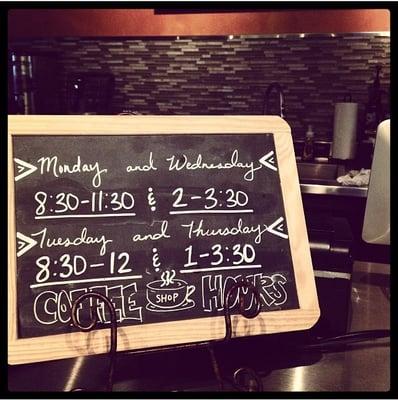 Monday and Wednesday
8:30-11:30 & 2-3:30
Tuesday and Thursday
8:30-12 & 1-3:30
COFFEE SHOP HOURS